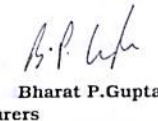 B.P. Gupta
Bharat P.Gupta
urers